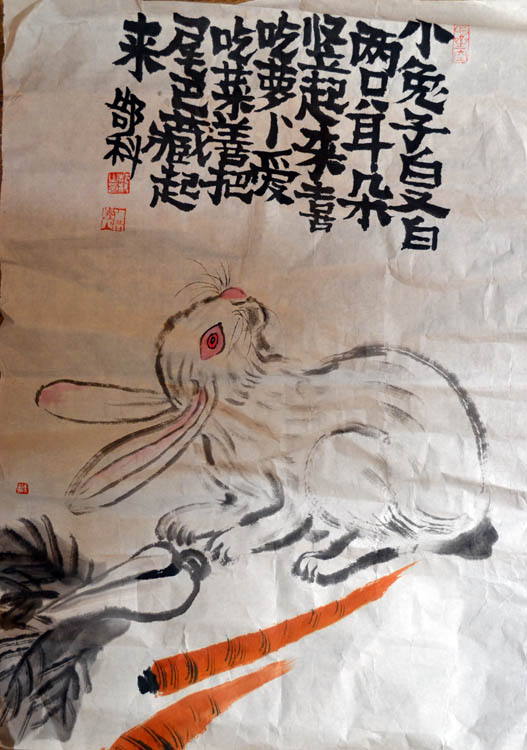 小兔子白又白
两只耳朵
竖起来喜
吃萝卜爱
吃菜善把
尾巴藏起
来 科